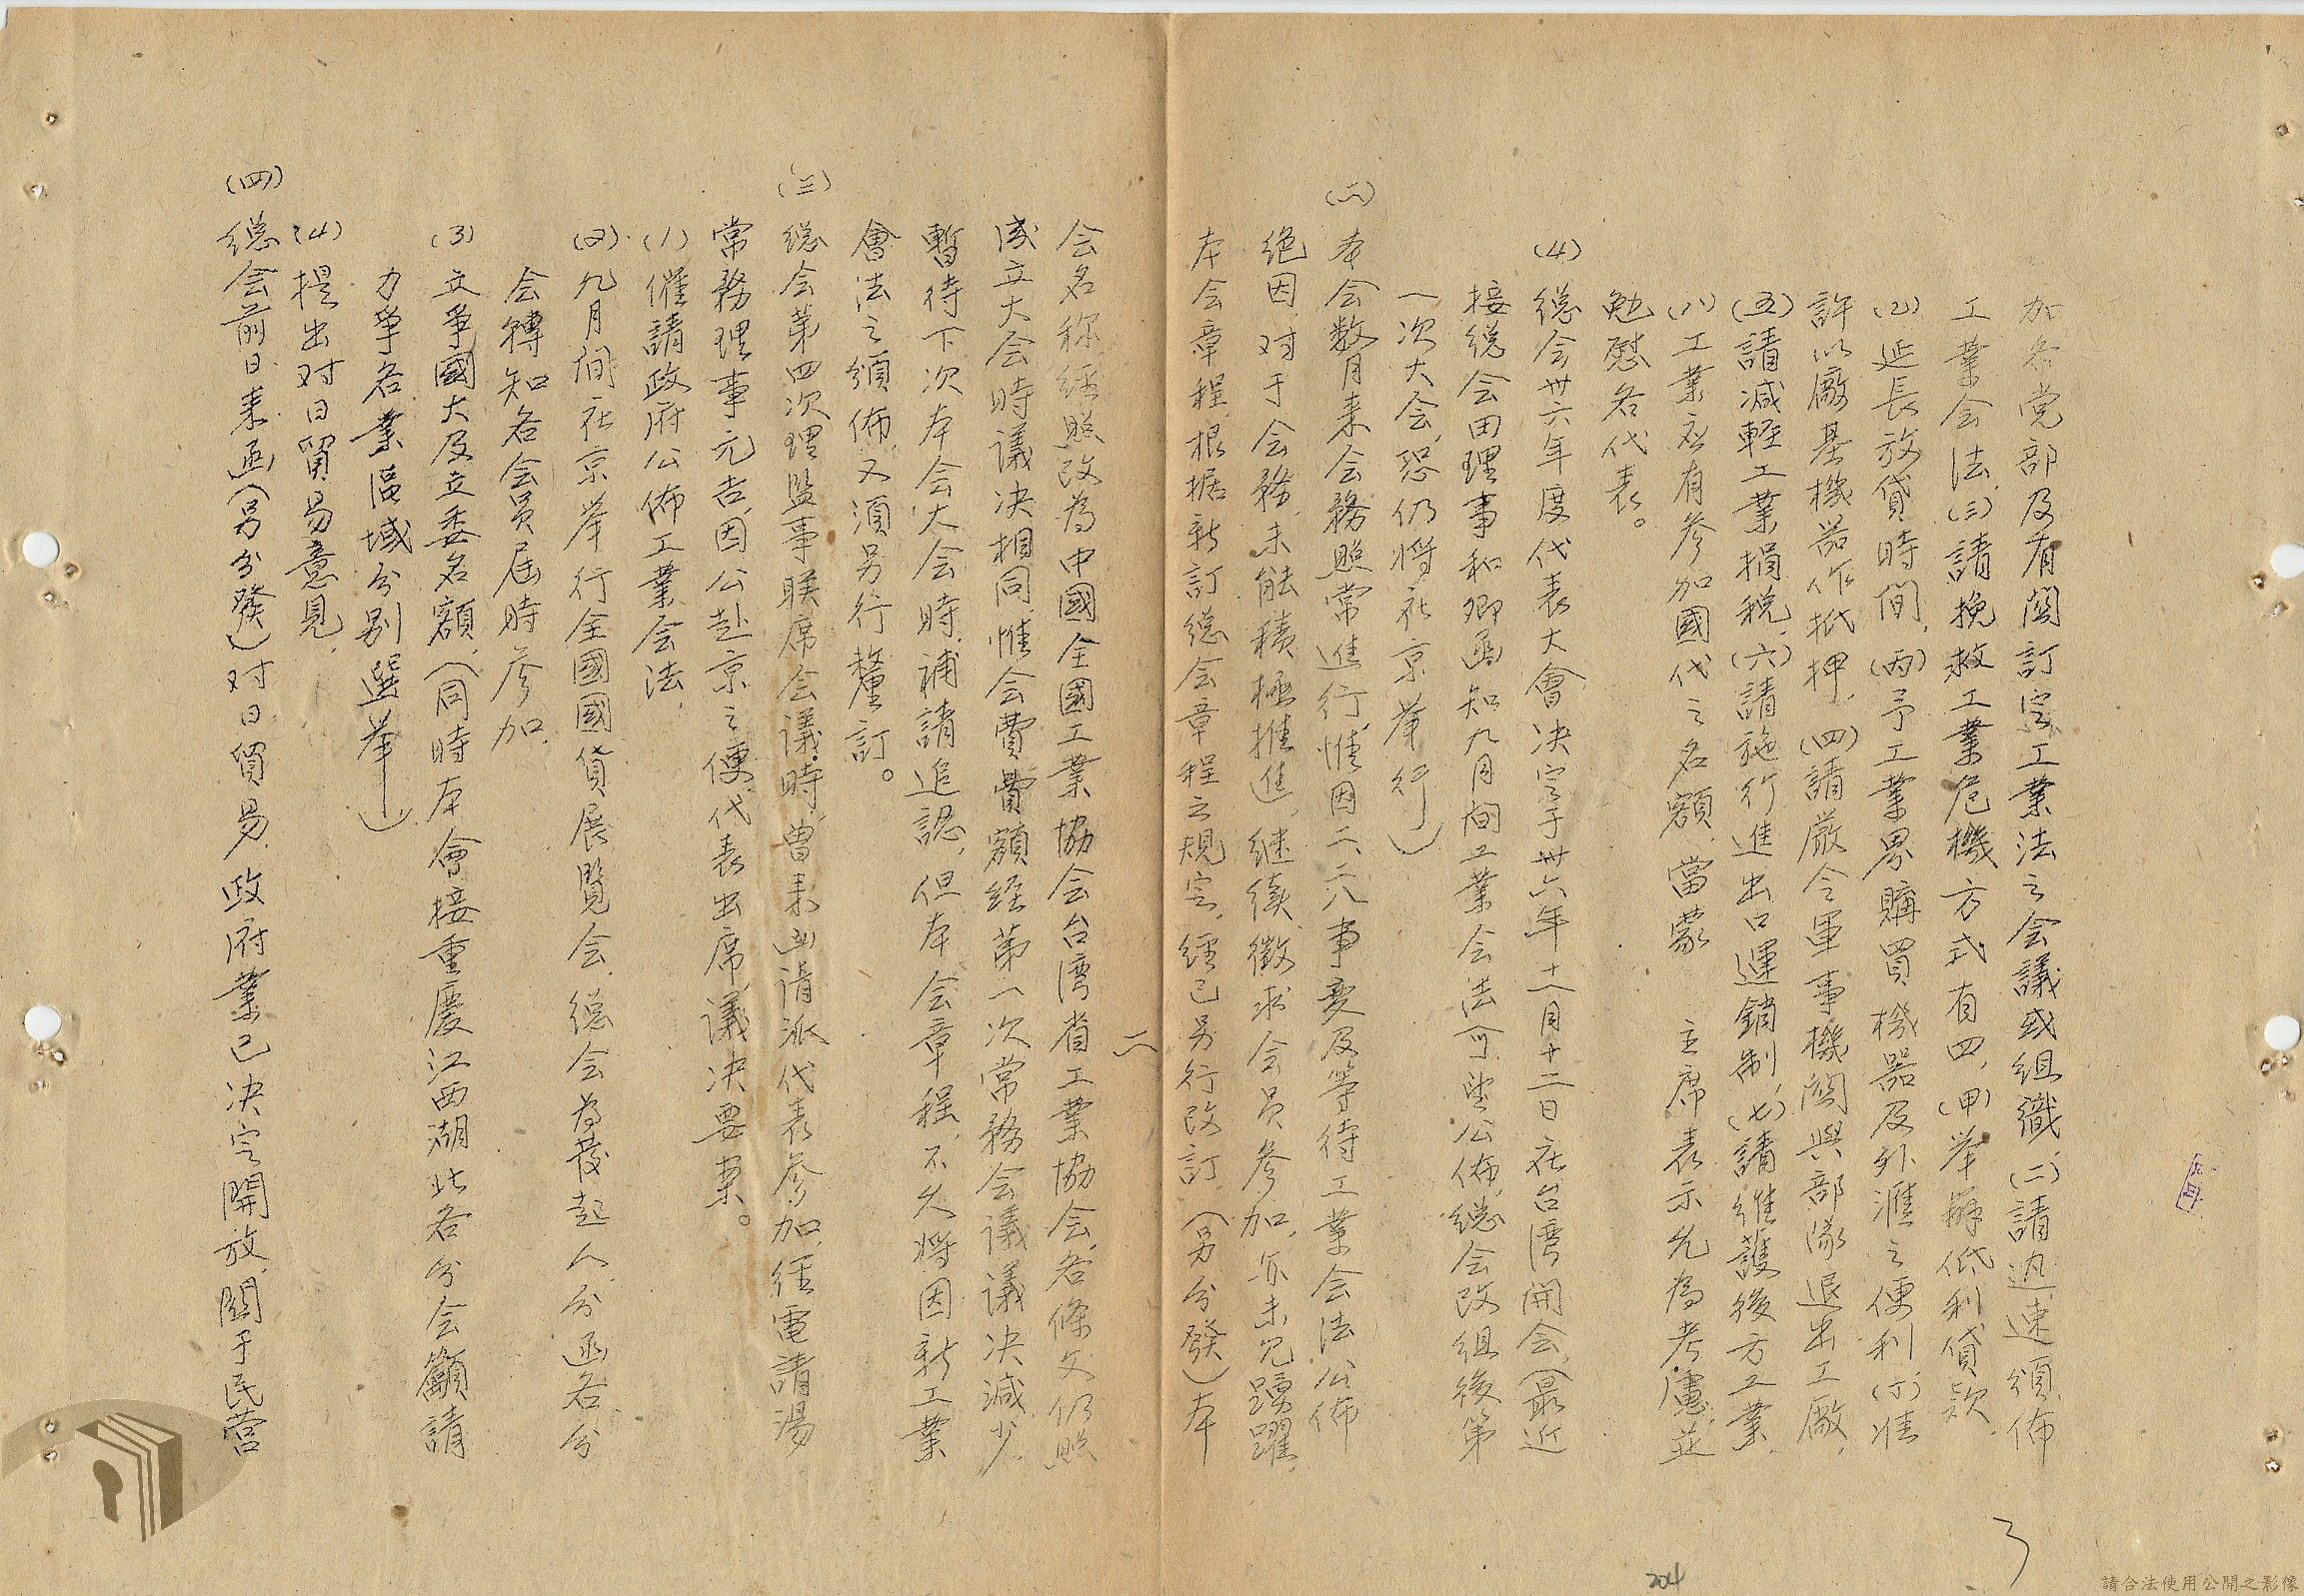 加各党部及有関訂定工業法之会議或組織、(二)請迅速頒佈
工業会法、(三)請挽救工業危機方式有四、(甲)举辦低利貸款、
(乙)延長放貸時间、(丙)予工業界購買機器及外滙之便利(丁)准
許以廠基機器作抵押、(四)請厳令軍事機関與部隊退出工廠、
(五)請減輕工業捐税、(六)請施行進出口連鎖制、(七)請維護後方工業、
(八)工業应有参加國代之名額、當蒙　主席表示允為考慮並
勉慰各代表。
(4)総会卅六年度代表大會决定于卅六年十一月十二日在台湾開会、(最近
接総会田理事和卿函知九月间工業会法可望公佈、総会改组後第
一次大会、恐仍将在京举行)
(二)本会数月来会務照常進行、惟因二、二八事变及等待工業会法公佈
绝因、对于会務、未能積極推進、继续徵求会员参加、亦未见踴躍、
本会章程、根据新訂総会章程之規定、経已另行改訂、(另分發)本
二
会名称経照改為中國全國工業協会台湾省工業協会、各條文仍照
成立大会時議决相同、惟会費費額経第一次常務会議議决減少、
暫待下次本会大会時、補請追認、但本会章程、不久将因新工業
會法之頒佈、又須另行釐訂。
(三)総会第四次理監事联席会議時、曽来函請派代表参加、経電請湯
常務理事元吉、因公赴京之便、代表出席、議决要案。
(1)催請政府公佈工業会法、
(2)九月间在京举行全國國貨展覧会、総会為發起人、分函各分
会轉知各会员届時参加、
(3)立爭國大及立委名額、(同時本會接重慶江西湖北各分会籲請
力爭各業區域分别選举—)
(4)提出对日貿易意見、
(四)総会前日来函(另分發)对日貿易、政府業已决定開放、関于民营
204
請合法使用公開之影像